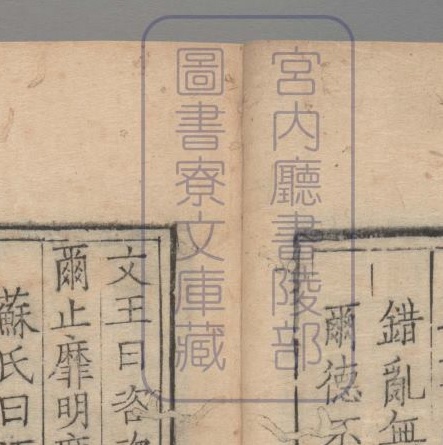 宮内廳書陵部
圖書寮文庫藏
錯亂無
爾德不
文王曰咨
爾止靡明
蘇氏曰